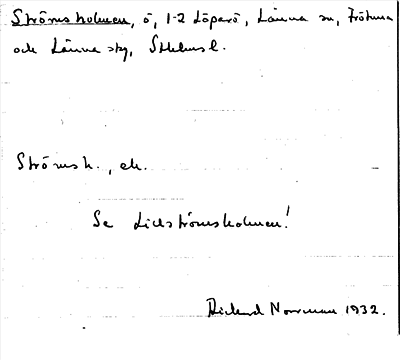 Strömsholmen, ö, 1-2 Löparö, Länna sn, Frötuna
och Länna skg, Sthlms l.
Strömsh., ek.
Se Lidströmsholmen!
Rickard Norrman 1932.